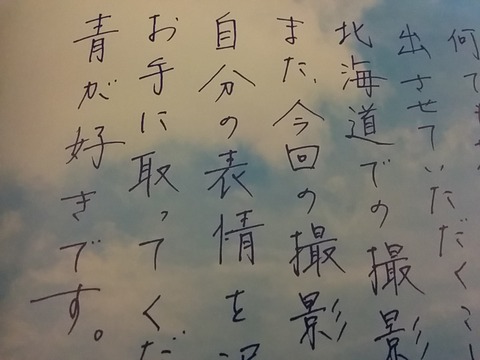 何でも
出させていただくこ
北海道での撮影
また、今回の撮影
自分の表情を
お手に取ってくだ
青が好きです。